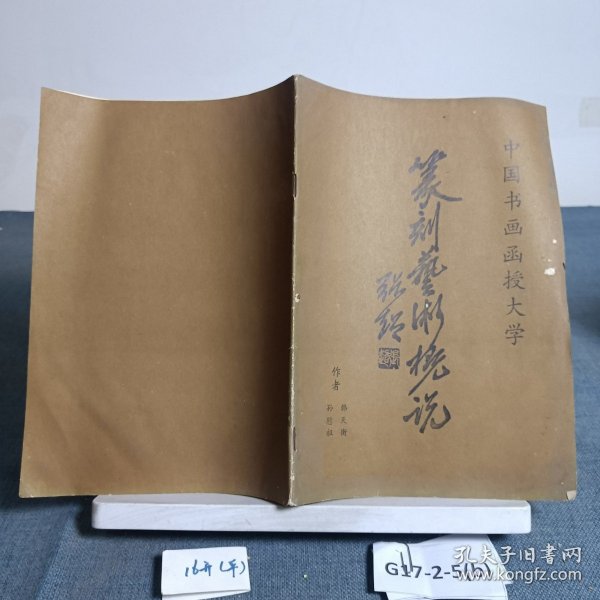 中国书画函授大学
篆刻藝術概说
作者
韩天衡
孙慰祖
16开(平)
G17-2-5(b)
孔夫子旧书网
www.kongfz.com